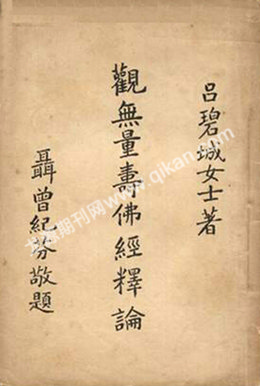 呂碧城女士著
觀無量壽佛經釋論
聶曾紀芬敬題
www.qikan.com